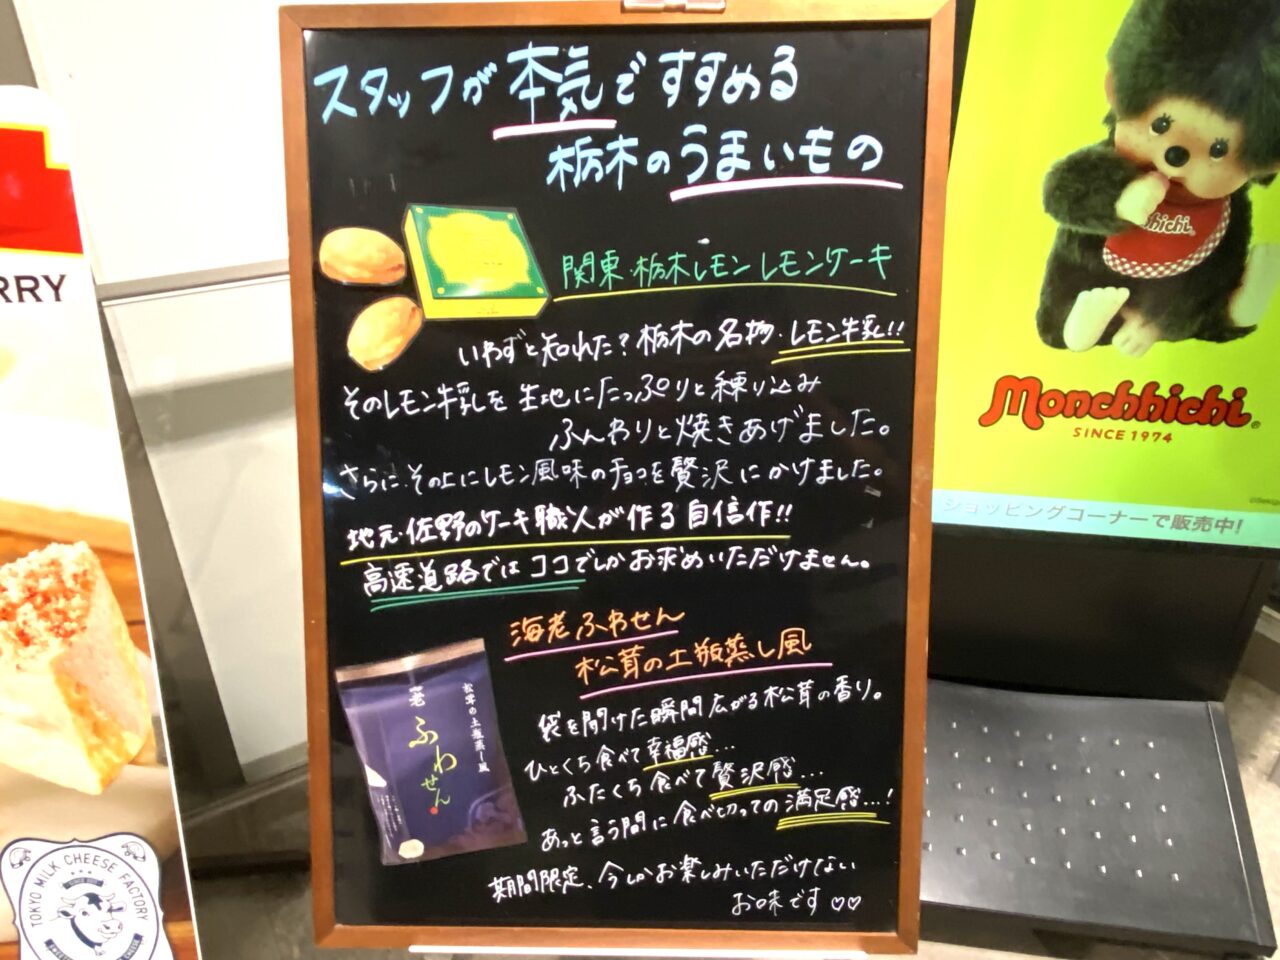 スタッフが本気ですすめる
栃木のうまいもの
関東・栃木レモンレモンケーキ
いわずと知れた?栃木の名物・レモン牛乳!!
そのレモン牛乳を生地にたっぷりと練り込み
ふんわりと焼きあげました。
さらに、その上にレモン風味のチョコを贅沢にかけました。
地元・佐野のケーキ職人が作る自信作!!
高速道路ではココでしかお求めいただけません。
海老ふわせん
松茸の土瓶蒸し風
袋を開けた瞬間広がる松茸の香り。
ひとくち食べて幸福感…
ふたくち食べて贅沢感…
あっと言う間に食べ切っての満足感…!
期間限定、今しかお楽しみいただけない
お味です♡♡
松茸の土瓶蒸し風
老ふわせん
RRY
TOKYO MILK CHEESE FACTORY
chhichi
Monchhichi®
SINCE 1974
ショッピングコーナーで販売中!